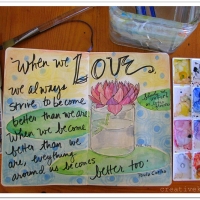 When we
Love,
we always
strive to become
better than we are.
When we become
better than
we are, everything
around us becomes
better too.
Paulo Coelho